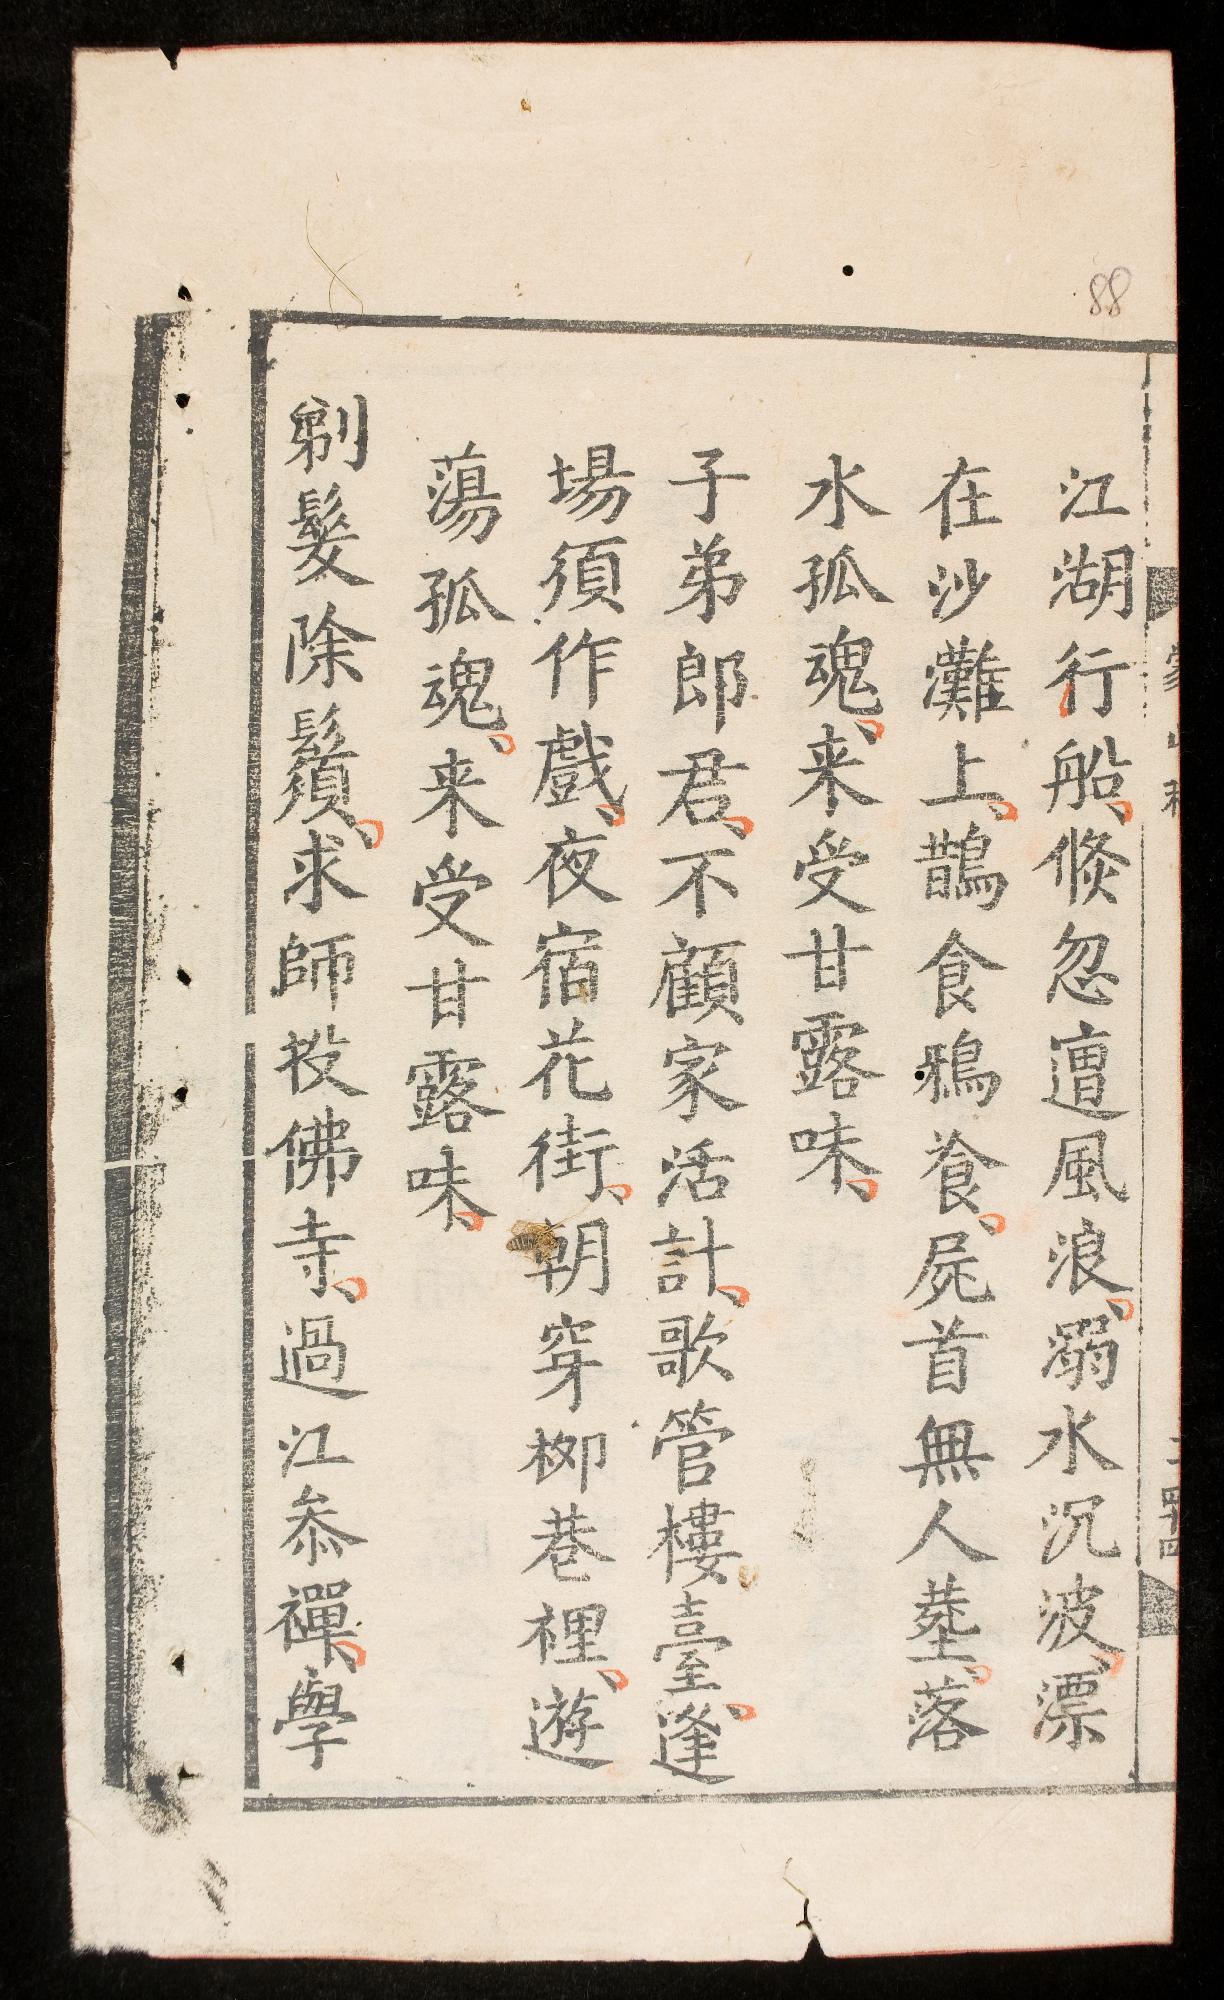 88
江湖行船、倏忽遭風浪、溺水沉波、漂
在沙灘上、鵲食鴉飡、屍首無人塟、落
水孤魂、来受甘露味、
子弟郎君、不顧家活計、歌管樓臺、逢
場須作戲、夜宿花街、朝穿栁巷裡、遊
蕩孤魂、来受甘露味、
剃髮除鬚、求師投佛寺、過江叅禪、學